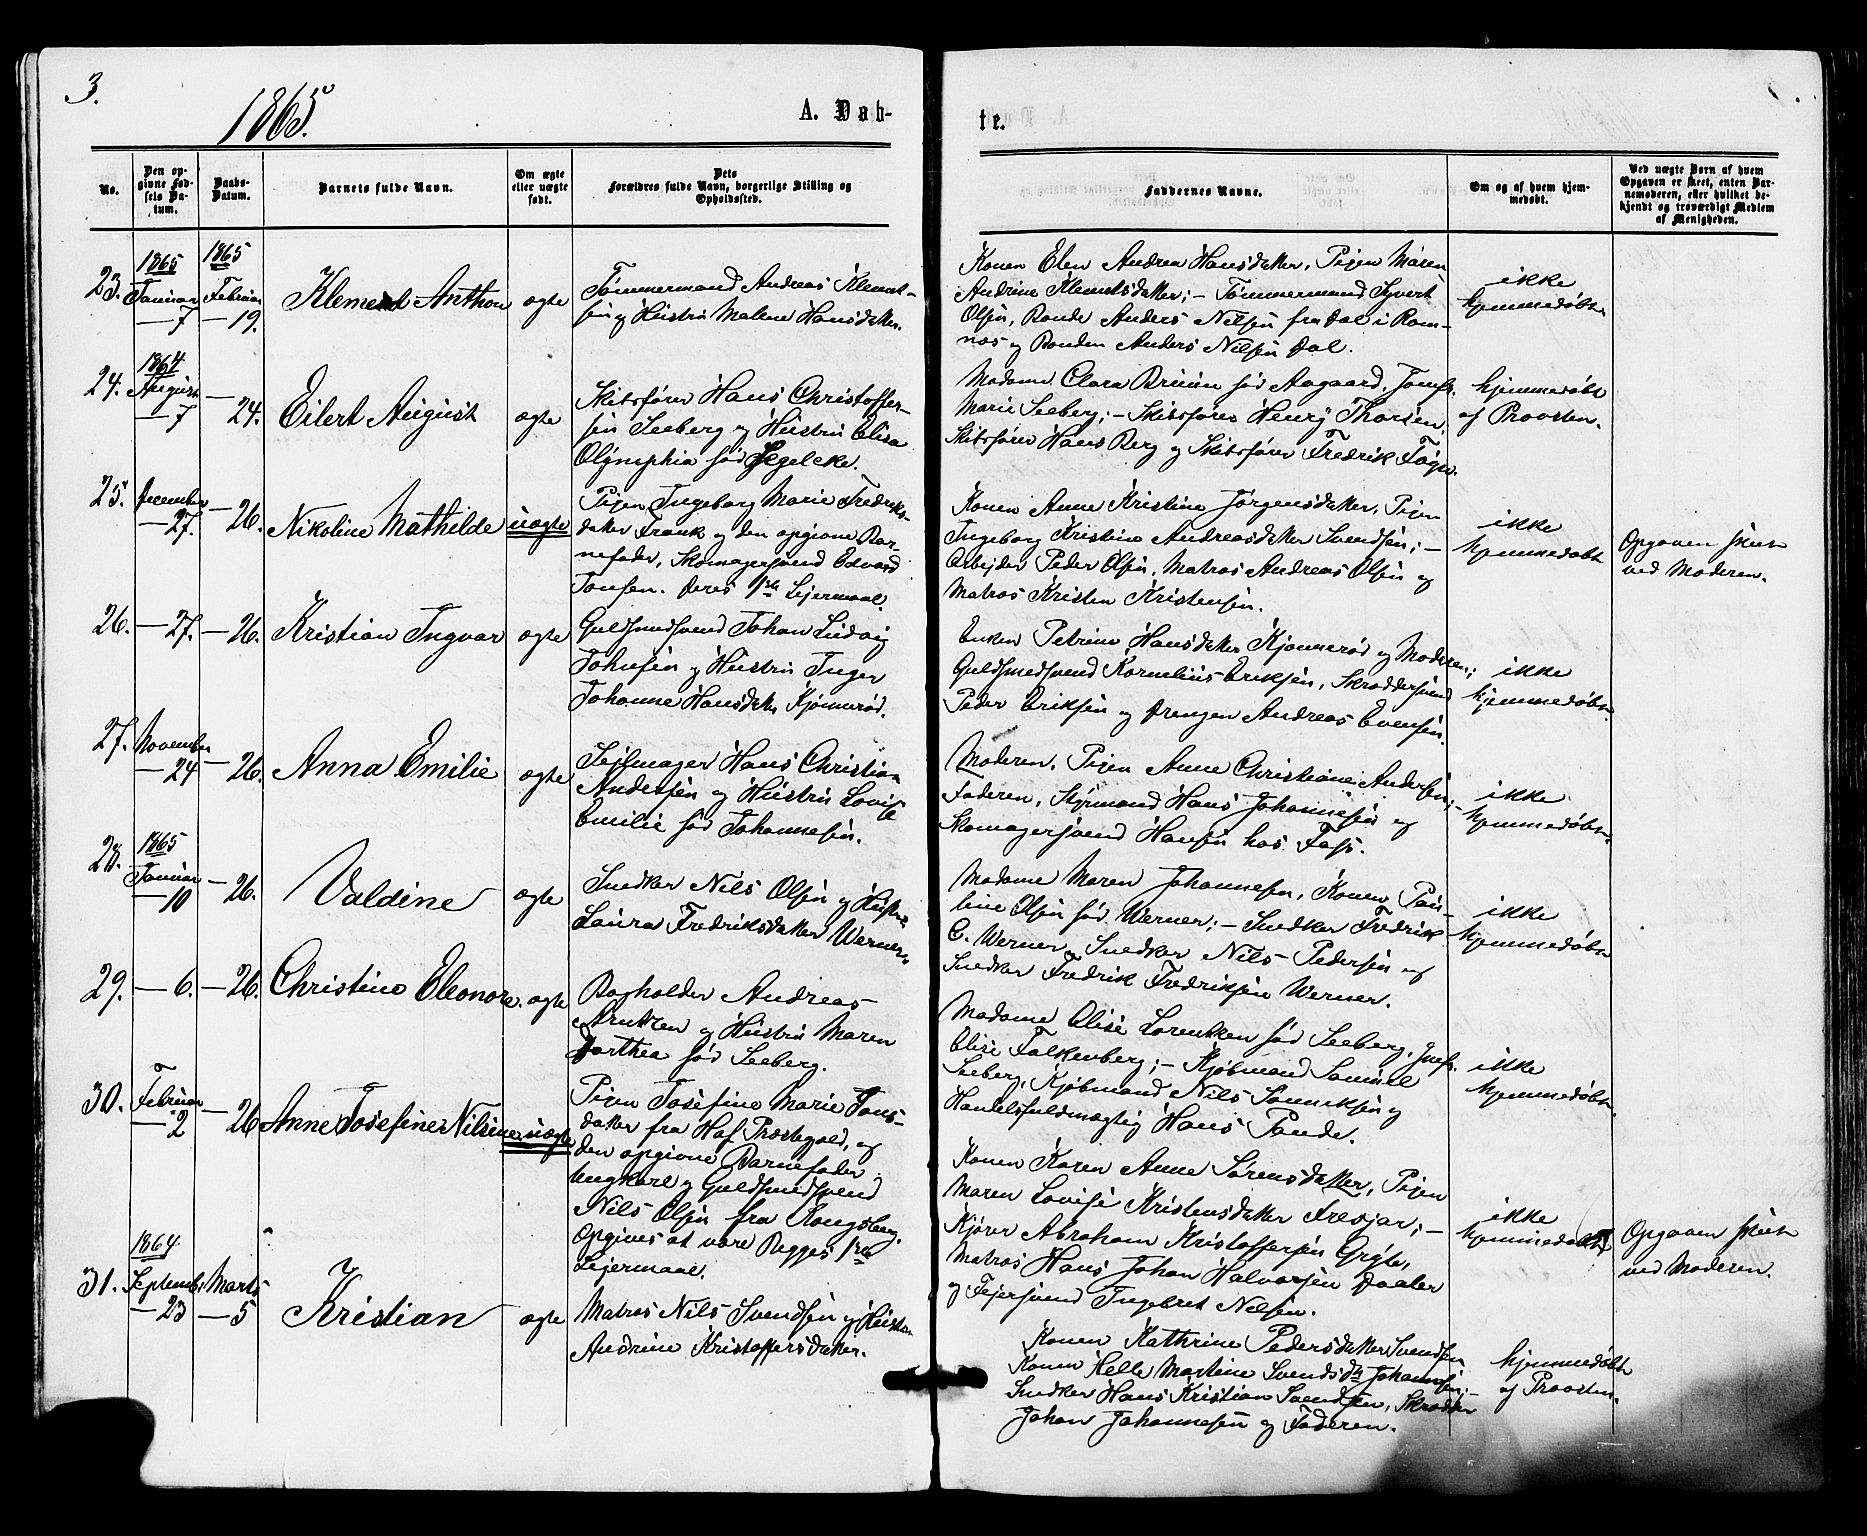 3.
1865.
A. Døb-
te.
No.
Den op-
givne Fød-
sels Da-
tum.
Daabs-
Datum.
Barnets fulde Navn.
Om ægte
eller uægte
født.
Dets
Forældres fulde Navn, borgerlige Stilling og
Opholdssted.
Faddernes Navne.
Om og af hvem hjem-
medøbt.
Ved uægte Børn af hvem
Opgaven er skeet, enten Bar-
nemoderen, eller hvilket be-
kjendt og troværdigt Medlem
af Menigheden.
23.
1865
Januar
— 7
1865
Februar
— 19.
Klement Anthon
ægte
Tømmermand Andreas Klemet-
sen og Hustru Malene Hansdatter.
Konen Elen Andrea Hansdatter, Pigen Maren
Andrine Klemetsdatter; — Tømmermand Syvert
Olsen, Bonde Anders Nilsen fra Dal i Ram-
næs og Bonden Anders Nilsen Dal.
ikke
hjemmedøbt.
24.
1864
August
— 7
— 24.
Eilert August
ægte
Skibsfører Hans Christoffer-
sen Seeberg og Hustru Elisa
Olymphia fød Segelcke.
Madame Clara Bruun fød Aagaard, Jomfr.
Marie Seeberg; — Skibsfører Henry Thorsen,
Skibsfører Hans Berg og Skibsfører Fredrik Føyn.
hjemmedøbt
af Provsten.
25.
December
— 27.
— 26.
Nikoline Mathilde
uægte
Pigen Ingeborg Marie Fredriks-
datter Frank og den opgivne Bar-
nefader, Skomagersvend Edvard
Jonsen. Deres 1ste Lejermaal.
Konen Anne Kristine Jørgensdatter, Pigen
Ingeborg Kristine Andreasdatter Svendsen; —
Arbejder Peder Olsen, Matros Andreas Olsen og
Matros Kristen Kristensen.
ikke
hjemmedøbt
Opgaven skeet
ved Moderen.
26.
— 27.
— 26.
Kristian Ingvar
ægte
Guldsmedsvend Johan Ludvig
Johnsen og Hustru Inger
Johanne Hansdatter Kjønnerød.
Enken Petrine Hansdatter Kjønnerød og Moderen;
Guldsmedsvend Kornelius Eriksen, Skræddersvend
Peder Eriksen og Drengen Andreas Evensen.
ikke
hjemmedøbt.
27.
November
— 24
— 26.
Anna Emilie
ægte
Sejlmager Hans Christian
Andersen og Hustru Lovise
Emilie fød Johannesen.
Moderen, Pigen Anne Christiane Andersen; —
Faderen, Styrmand Hans Johannesen og
Skomagersvend Hansen hos Fass.
ikke
hjemmedøbt.
28.
1865
Januar
— 10
— 26.
Valdine
ægte
Snedker Nils Olsen og Hustru
Laura Fredriksdatter Werner.
Madame Maren Johannesen, Konen Pau-
line Olsen fød Werner; — Snedker Fredrik
C. Werner, Snedker Nils Pedersen og
Snedker Fredrik Fredriksen Werner.
ikke
hjemmedøbt.
29.
— 6.
— 26.
Christine Eleonore.
ægte
Bogholder Andreas
Arntzen og Hustru Maren
Dorthea fød Seeberg.
Madame Elise Lorentzen fød Seeberg, Jomfr.
Elise Falkenberg; — Kjøbmand Samuel
Seeberg, Kjøbmand Nils Sønniksen og
Handelsfuldmægtig Hans Pande.
ikke
hjemmedøbt.
30.
Februar
— 2
— 26
Anne Josefine Nilsine
uægte
Pigen Josefine Marie Jons-
datter fra Hof Præstegjeld, og
den opgivne Barnefader
Ungkarl og Guldsmedsvend
Nils Olsen fra Kongsberg.
Opgives at være Begges 1ste
Lejermaal.
Konen Karen Anne Sørensdatter, Pigen
Maren Lovise Kristensdatter Fresjar; —
Kjører Abraham Kristoffersen Gryte,
Matros Hans Johan Halvorsen Daaler
og Fejersvend Ingebret Nilsen.
ikke
hjemmedøbt
Opgaven skeet
ved Moderen.
31.
1864
Septemb.
— 23
Marts
— 5
Kristian
ægte
Matros Nils Svendsen og Hustru
Andrine Kristoffersdatter.
Konen Kathrine Pedersdatter Svendsen
Konen Helle Martine Svendsdtr Johannesen; —
Snedker Hans Kristian Svendsen, Skrædder
Johan Johannesen og Faderen.
hjemmedøbt
af Provsten.